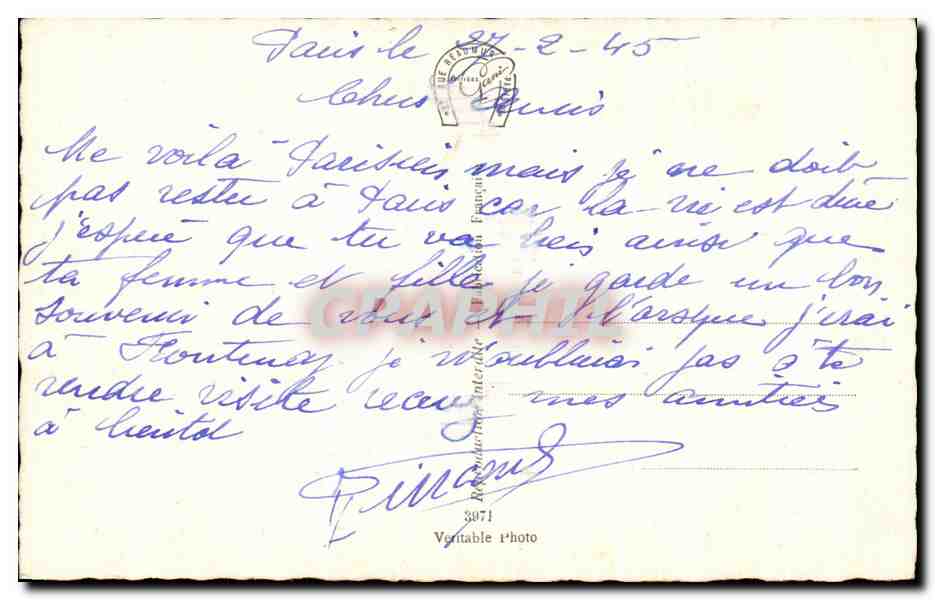 Paris le 27-2-45
Chers Amis
Me voila Parisien mais je ne doit
pas rester à Paris car la vie est dure
j'espère que tu va bien ainsi que
ta femme et fille je garde un bon
souvenir de vous et lorsque j'irai
à Fontenay je n'oublierai pas à te
rendre visite recevez mes amitiés
à bientot
RUE REAUMUR
GRAPHTIL
Reproduction interdite Fabrication Française
3971
Véritable Photo